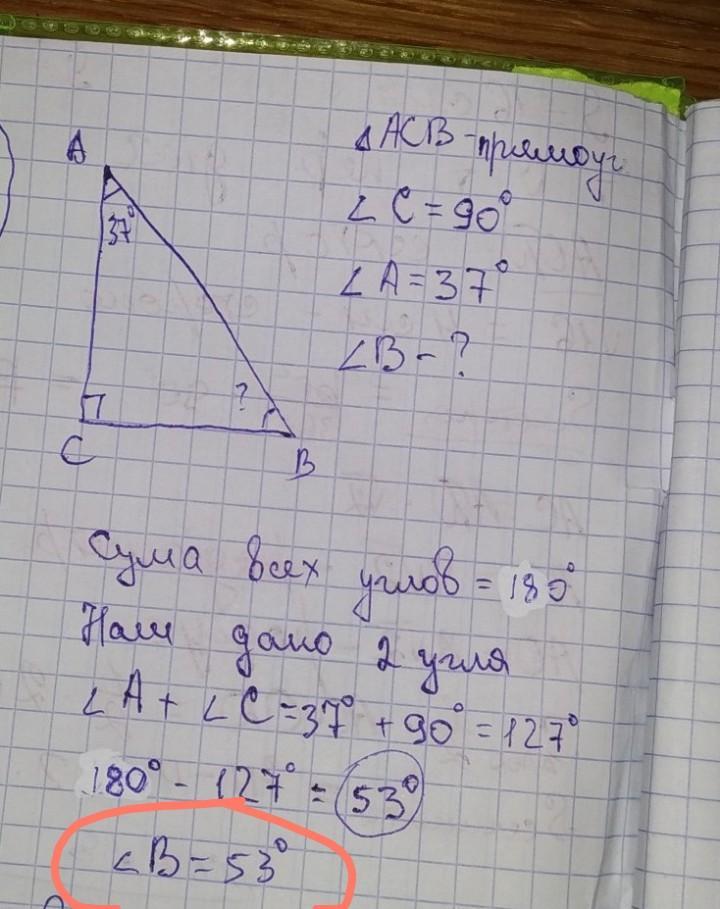 A
37°
C
?
B
Δ ACB - прямоуг
∠ C = 90°
∠ A = 37°
∠ B - ?
Сума всех углов = 180°
Нам дано 2 угля
∠ A + ∠ C = 37° + 90° = 127°
180° - 127° = 53°
∠ B = 53°